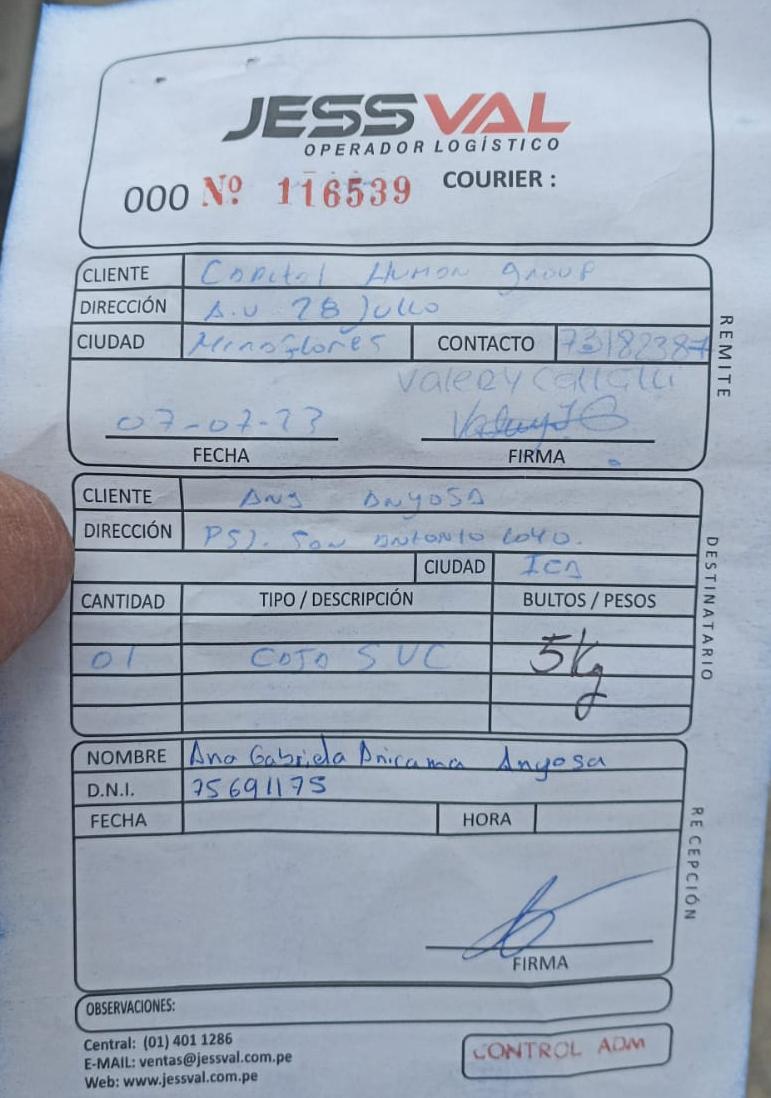 JESSVAL
OPERADOR LOGÍSTICO
000 Nº 116539 COURIER :
REMITE
CLIENTE Capital Human group
DIRECCIÓN A.V 28 Julio
CIUDAD Miraflores CONTACTO 73182387
Valery
07-07-23
FECHA FIRMA
DESTINATARIO
CLIENTE Ana Anyosa
DIRECCIÓN PSJ. San Antonio
CIUDAD ICA
CANTIDAD TIPO / DESCRIPCIÓN BULTOS / PESOS
01 5Kg
RECEPCIÓN
NOMBRE Ana Gabriela Anicama Anyosa
D.N.I. 75691175
FECHA HORA
FIRMA
OBSERVACIONES:
Central: (01) 401 1286
E-MAIL: ventas@jessval.com.pe
Web: www.jessval.com.pe
CONTROL ADM